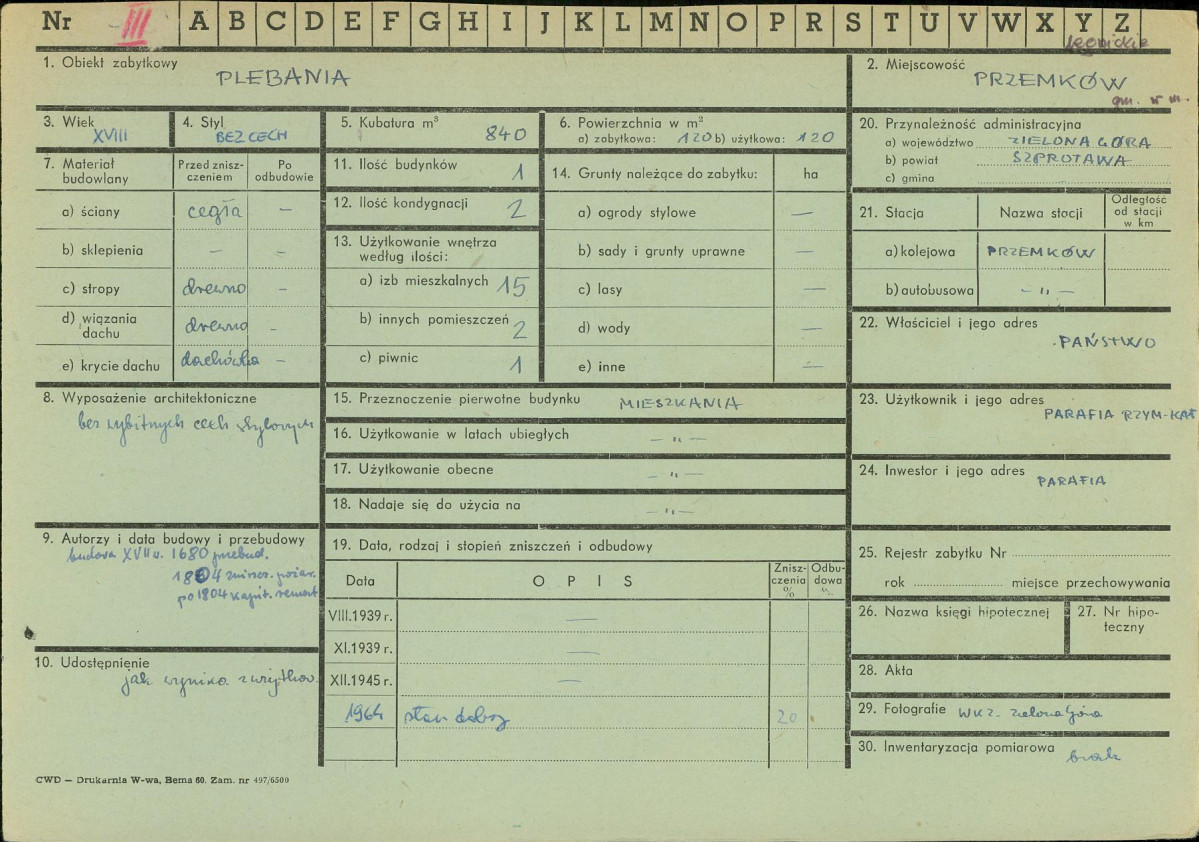 Nr III A B C D E F G H I J K L M N O P R S T U V W X Y Z
legnickie
1. Obiekt zabytkowy
PLEBANIA
2. Miejscowość
PRZEMKÓW
gm. w m.
3. Wiek
XVIII
4. Styl
BEZ CECH
5. Kubatura m³
840
6. Powierzchnia w m²
a) zabytkowa: 120 b) użytkowa: 120
20. Przynależność administracyjna
a) województwo ZIELONA GÓRA
b) powiat SZPROTAWA
c) gmina
7. Materiał budowlany
Przed znisz-
czeniem
Po
odbudowie
a) ściany cegła –
b) sklepienia – –
c) stropy drewno –
d) wiązania
dachu drewno –
e) krycie dachu dachówka –
11. Ilość budynków 1
12. Ilość kondygnacji 2
13. Użytkowanie wnętrza
według ilości:
a) izb mieszkalnych 15
b) innych pomieszczeń 2
c) piwnic 1
14. Grunty należące do zabytku: ha
a) ogrody stylowe —
b) sady i grunty uprawne —
c) lasy —
d) wody —
e) inne —
21. Stacja
Nazwa stocji
Odległość
od stacji
w km
a) kolejowa PRZEMKÓW
b) autobusowa – „ –
22. Właściciel i jego adres
PAŃSTWO
8. Wyposażenie architektoniczne
bez wybitnych cech stylowych
15. Przeznoczenie pierwotne budynku MIESZKANIA
16. Użytkowanie w latach ubiegłych – „ —
17. Użytkowanie obecne – „ —
18. Nadaje się do użycia na – „ —
23. Użytkownik i jego adres
PARAFIA RZYM-KAT
24. Inwestor i jego adres
PARAFIA
9. Autorzy i data budowy i przebudowy
budowa XVII w. 1680 przebud.
1804 zniszcz. pożar.
po 1804 kapit. remont
19. Data, rodzaj i stopień zniszczeń i odbudowy
Data
O P I S
Znisz-
czenia
%
Odbu-
dowa
%
VIII.1939 r. —
XI.1939 r. —
XII.1945 r. —
1964 stan dobry 20
25. Rejestr zabytku Nr
rok miejsce przechowywania
26. Nazwa księgi hipotecznej
27. Nr hipo-
teczny
10. Udostępnienie
jak wynika z użytkow.
28. Akta
29. Fotografie WKZ – Zielona Góra
30. Inwentaryzacja pomiarowa
brak
CWD — Drukarnia W-wa, Bema 60. Zam. nr 497/6500